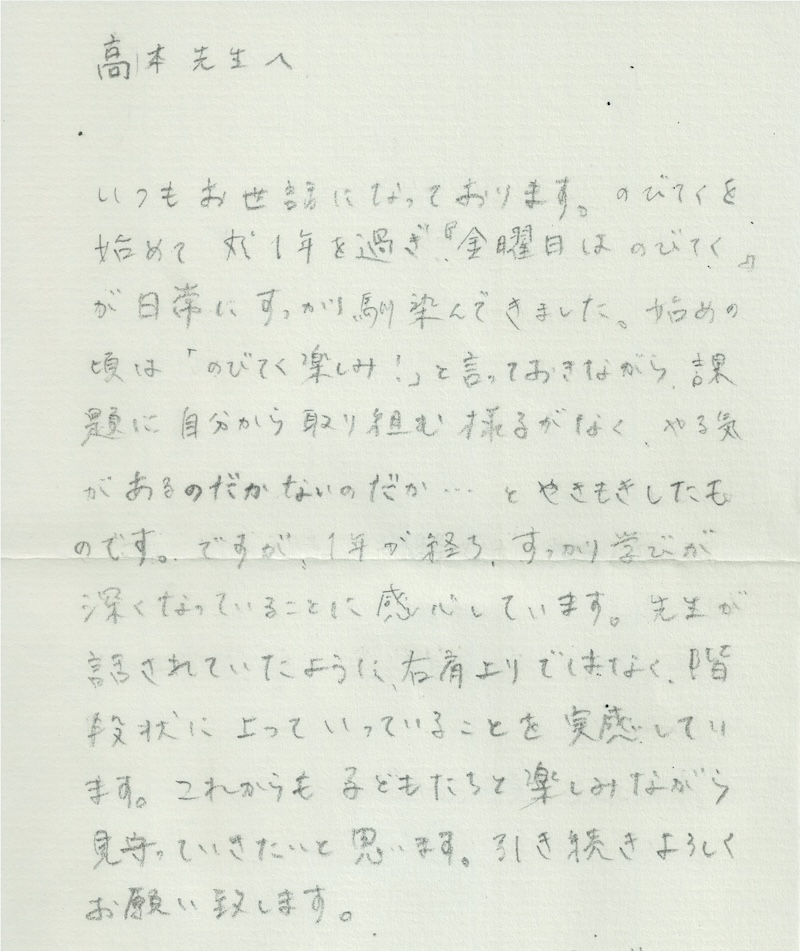 高本先生へ
いつもお世話になっております。のびてくを
始めて丸1年を過ぎ、『金曜日はのびてく』
が日常にすっかり馴染んできました。始めの
頃は「のびてく楽しみ!」と言っておきながら、課
題に自分から取り組む様子がなく、やる気
があるのだかないのだか…とやきもきしたも
のです。ですが、1年が経ち、すっかり学びが
深くなっていることに感心しています。先生が
話されていたように、右肩上りではなく、階
段状に上っていっていることを実感してい
ます。これからも子どもたちと楽しみながら
見守っていきたいと思います。引き続きよろしく
お願い致します。